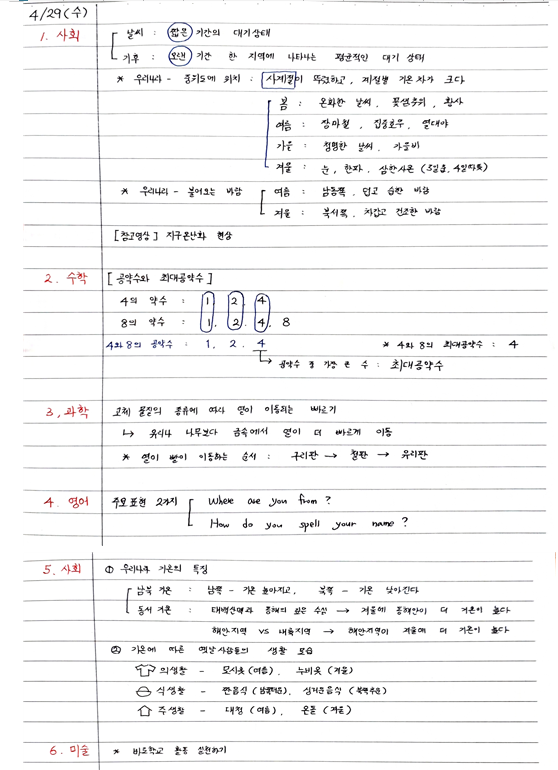 4/29 (수)
1. 사회
날씨 : 짧은 기간의 대기상태
기후 : 오랜 기간 한 지역에 나타나는 평균적인 대기 상태
* 우리나라 - 중위도에 위치 : 사계절이 뚜렷하고, 계절별 기온차가 크다
봄 : 온화한 날씨, 꽃샘추위, 황사
여름 : 장마철, 집중호우, 열대야
가을 : 청명한 날씨, 가을비
겨울 : 눈, 한파, 삼한사온 (3일춥, 4일따뜻)
* 우리나라 - 불어오는 바람
여름 : 남동쪽, 덥고 습한 바람
겨울 : 북서쪽, 차갑고 건조한 바람
[참고영상] 지구온난화 현상
2. 수학 [공약수와 최대공약수]
4의 약수 : 1, 2, 4
8의 약수 : 1, 2, 4, 8
4와 8의 공약수 : 1, 2, 4 * 4와 8의 최대공약수 : 4
→ 공약수 중 가장 큰 수 : 최대공약수
3. 과학 고체 물질의 종류에 따라 열이 이동되는 빠르기
↳ 유리나 나무보다 금속에서 열이 더 빠르게 이동
* 열이 빨리 이동하는 순서 : 구리판 → 철판 → 유리판
4. 영어 주요표현 2가지
Where are you from?
How do you spell your name?
5. 사회 ① 우리나라 기온의 특징
남북 기온 : 남쪽 - 기온 높아지고, 북쪽 - 기온 낮아진다
동서 기온 : 태백산맥과 동해의 깊은 수심 → 겨울에 동해안이 더 기온이 높다
해안지역 VS 내륙지역 → 해안지역이 겨울에 더 기온이 높다
② 기온에 따른 옛날사람들의 생활 모습
의생활 - 모시옷 (여름), 누비옷 (겨울)
식생활 - 짠음식 (남쪽더운), 싱거운음식 (북쪽추운)
주생활 - 대청 (여름), 온돌 (겨울)
6. 미술 * 비오학교 활동 실천하기